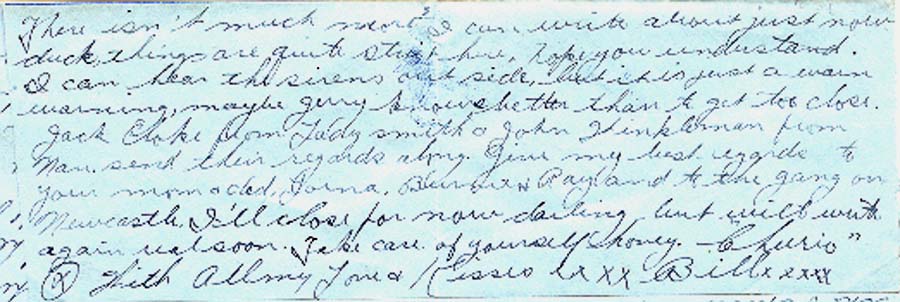 There isn't much more I can write about just now
duck, things are quite strict here, hope you understand.
I can hear the sirens out side, but it is just a warn
warning, maybe gerry knows better than to get too close.
Jack Cloke from Ladysmith & John Hinkleman from
Nan. send their regards along. Give my best regards to
your mom & dad, Lorna, Burnie & Ray and to the gang on
Newcastle. I'll close for now darling, but will write
again real soon. Take care of yourself honey. Cheerio"
With All my Love & Kisses xxxx Bill xxxx